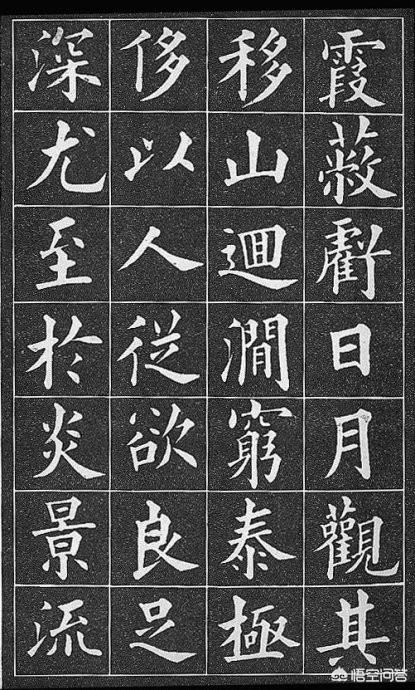 霞蔽虧日月觀其
移山迴澗窮泰極
侈以人從欲良足
深尤至於炎景流
悟空问答